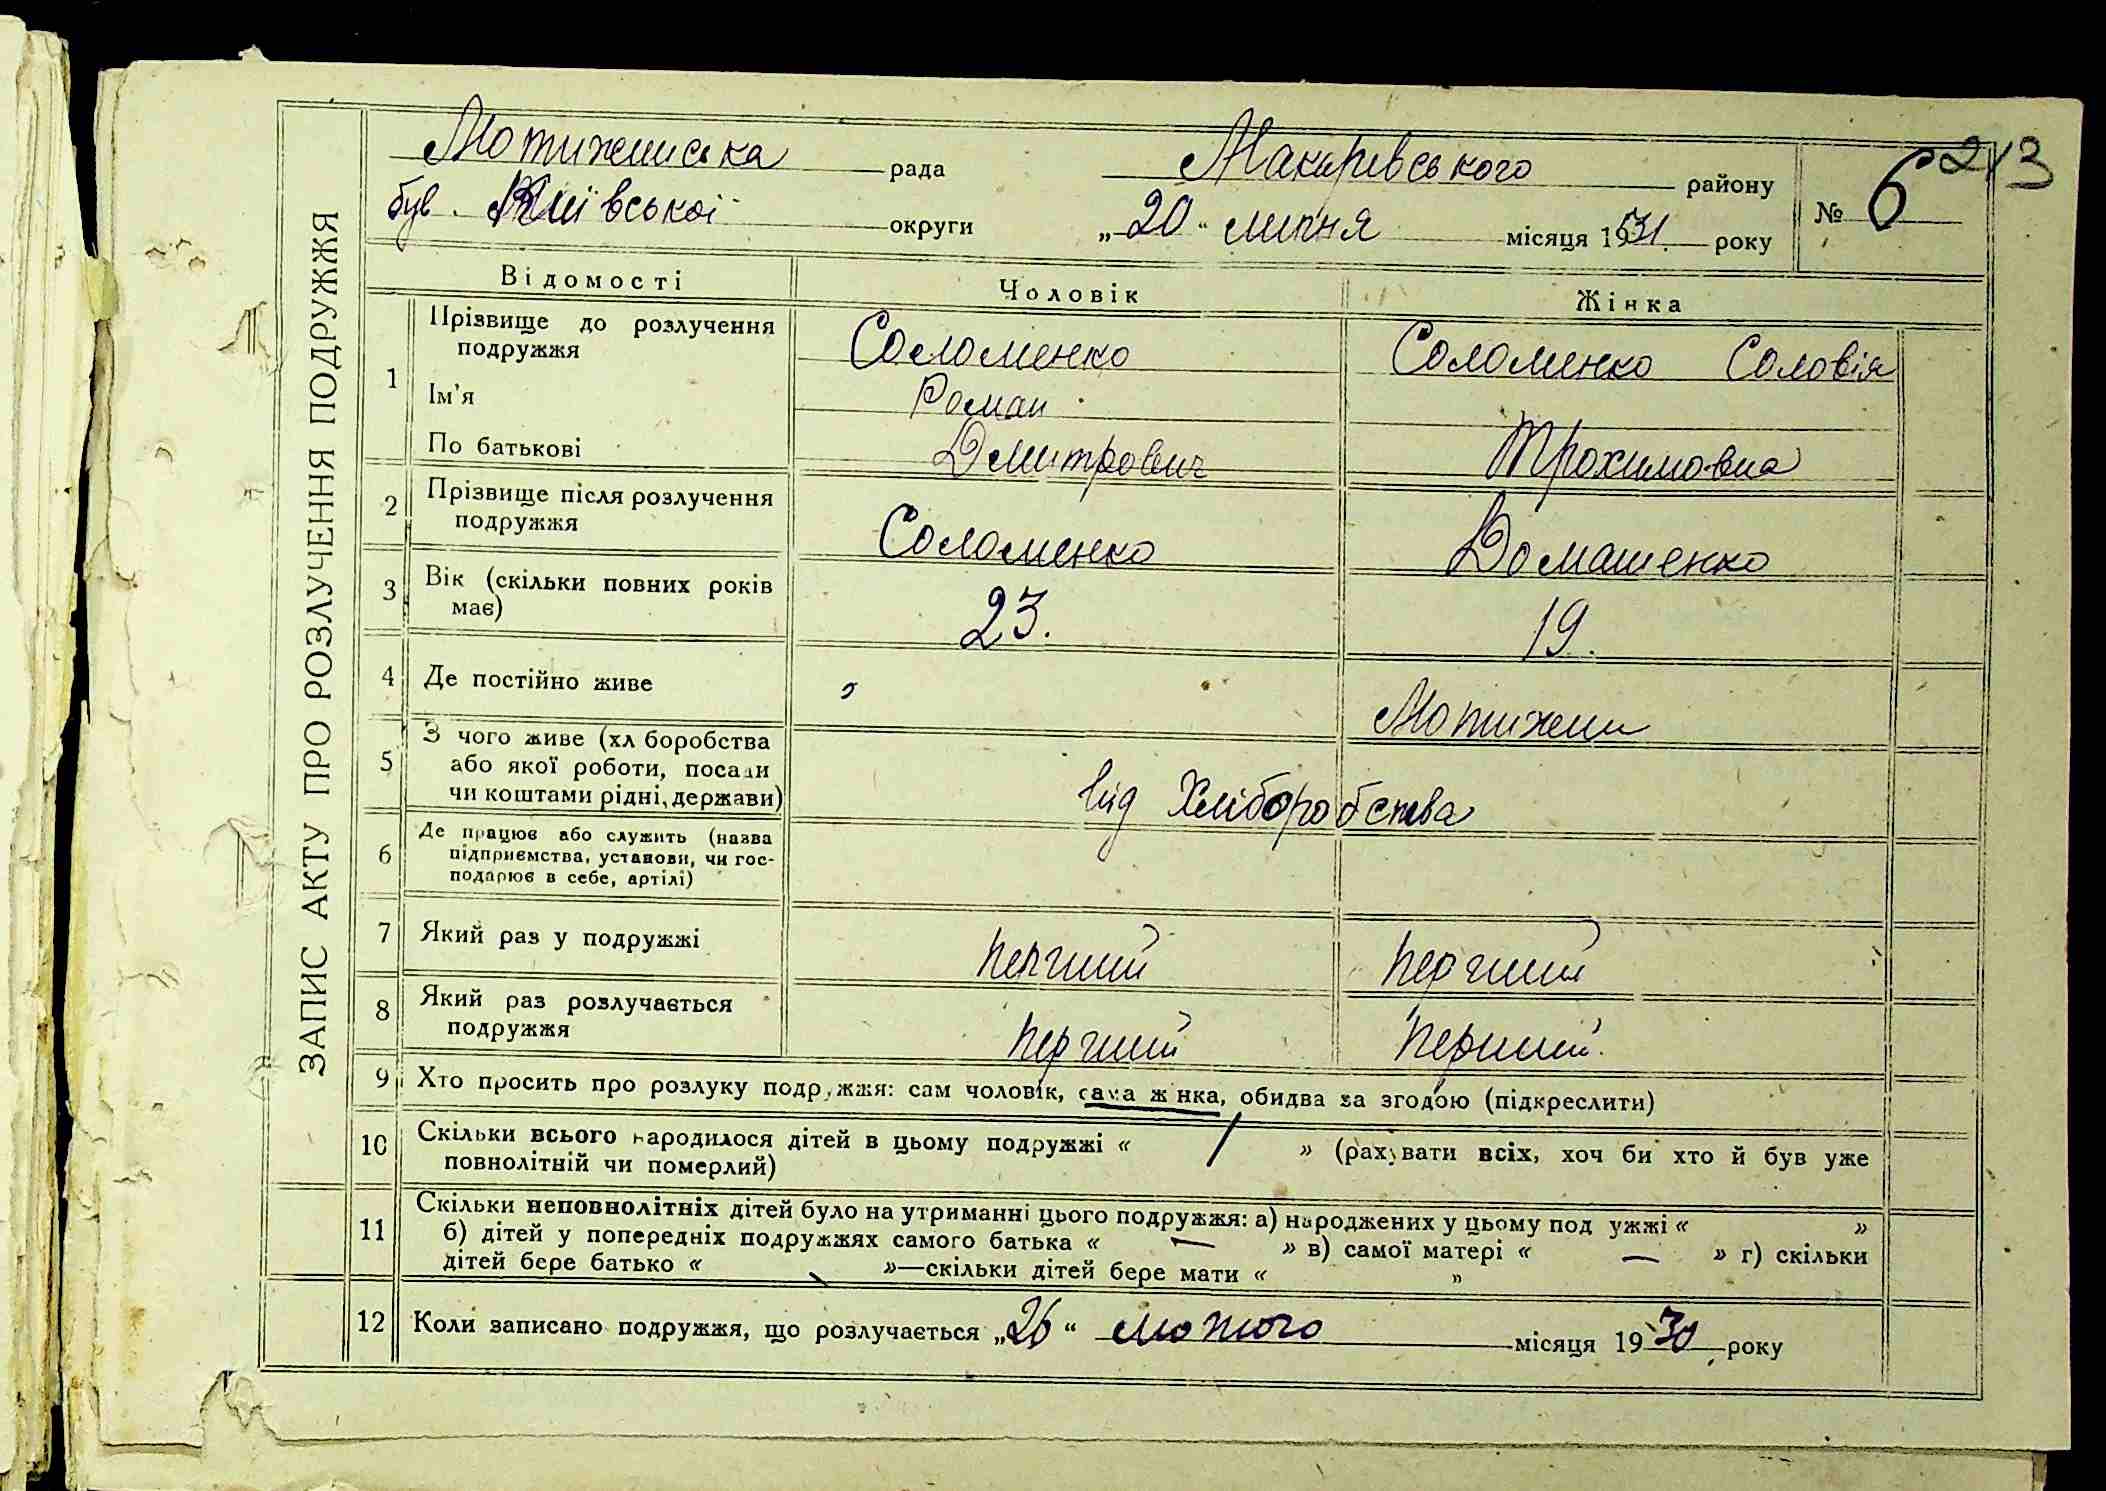 ЗАПИС АКТУ ПРО РОЗЛУЧЕННЯ ПОДРУЖЖЯ
213
Мотижинська рада Макарівського району № 6
був. Київської округи „20“ липня місяця 1931 року
Відомості Чоловік Жінка
1 Прізвище до розлучення подружжя Соломенко Соломенко Соловія
Ім'я Роман
По батькові Дмитрович Трохимовна
2 Прізвище після розлучення
подружжя Соломенко Домашенко
3 Вік (скільки повних років
має) 23. 19.
4 Де постійно живе Мотижин
5 З чого живе (хл боробства
або якої роботи, посади
чи коштами рідні, держави) від Хліборобства
6 Де працює або служить (назва
підприємства, установи, чи гос-
подарює в себе, артілі)
7 Який раз у подружжі перший перший
8 Який раз розлучається
подружжя перший перший
9 Хто просить про розлуку подружжя: сам чоловік, сама жінка, обидва за згодою (підкреслити)
10 Скільки всього народилося дітей в цьому подружжі « / » (рахувати всіх, хоч би хто й був уже
повнолітній чи померлий)
11 Скільки неповнолітніх дітей було на утриманні цього подружжя: а) народжених у цьому под ужжі « »
б) дітей у попередніх подружжях самого батька « — » в) самої матері « — » г) скільки
дітей бере батько « »—скільки дітей бере мати « »
12 Коли записано подружжя, що розлучається „26“ лютого місяця 1930 року